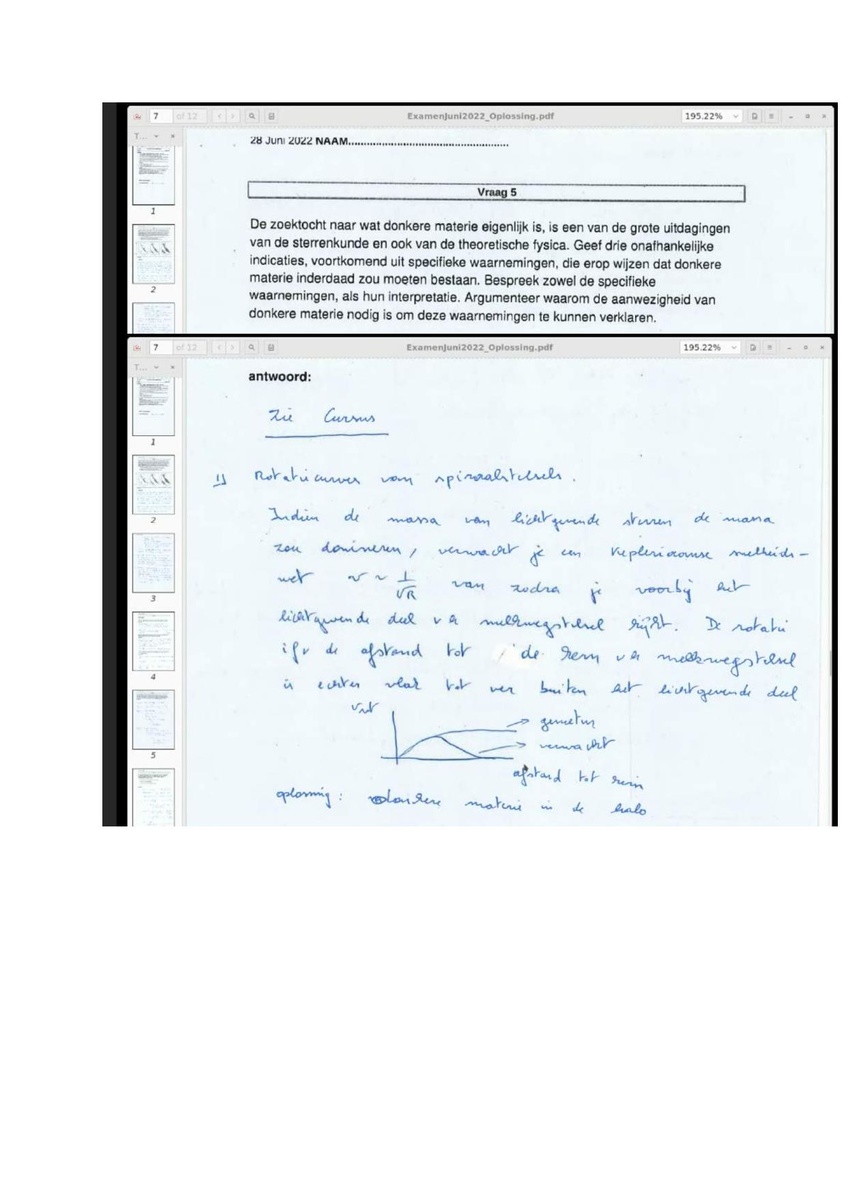 7 of 12 ExamenJuni2022_Oplossing.pdf 195.22%
T...
28 Juni 2022 NAAM......................................................
1
Vraag 5
De zoektocht naar wat donkere materie eigenlijk is, is een van de grote uitdagingen
van de sterrenkunde en ook van de theoretische fysica. Geef drie onafhankelijke
indicaties, voortkomend uit specifieke waarnemingen, die erop wijzen dat donkere
materie inderdaad zou moeten bestaan. Bespreek zowel de specifieke
2
waarnemingen, als hun interpretatie. Argumenteer waarom de aanwezigheid van
donkere materie nodig is om deze waarnemingen te kunnen verklaren.
7 of 12 ExamenJuni2022_Oplossing.pdf 195.22%
T...
antwoord:
Zie Cursus
1
1) Rotatiecurves van spiraalstelsels.
Indien de massa van lichtgevende sterren de massa
2
zou domineren, verwacht je een Kepleriaanse snelheids-
wet v ~ 1/√R van zodra je voorbij het
3
lichtgevende deel v h melkwegstelsel kijkt. De rotatie
ifv de afstand tot de kern v h melkwegstelsel
4
is echter vlak tot ver buiten het lichtgevende deel
vrot
gemeten
verwacht
5
afstand tot kern
oplossing: donkere materie in de halo